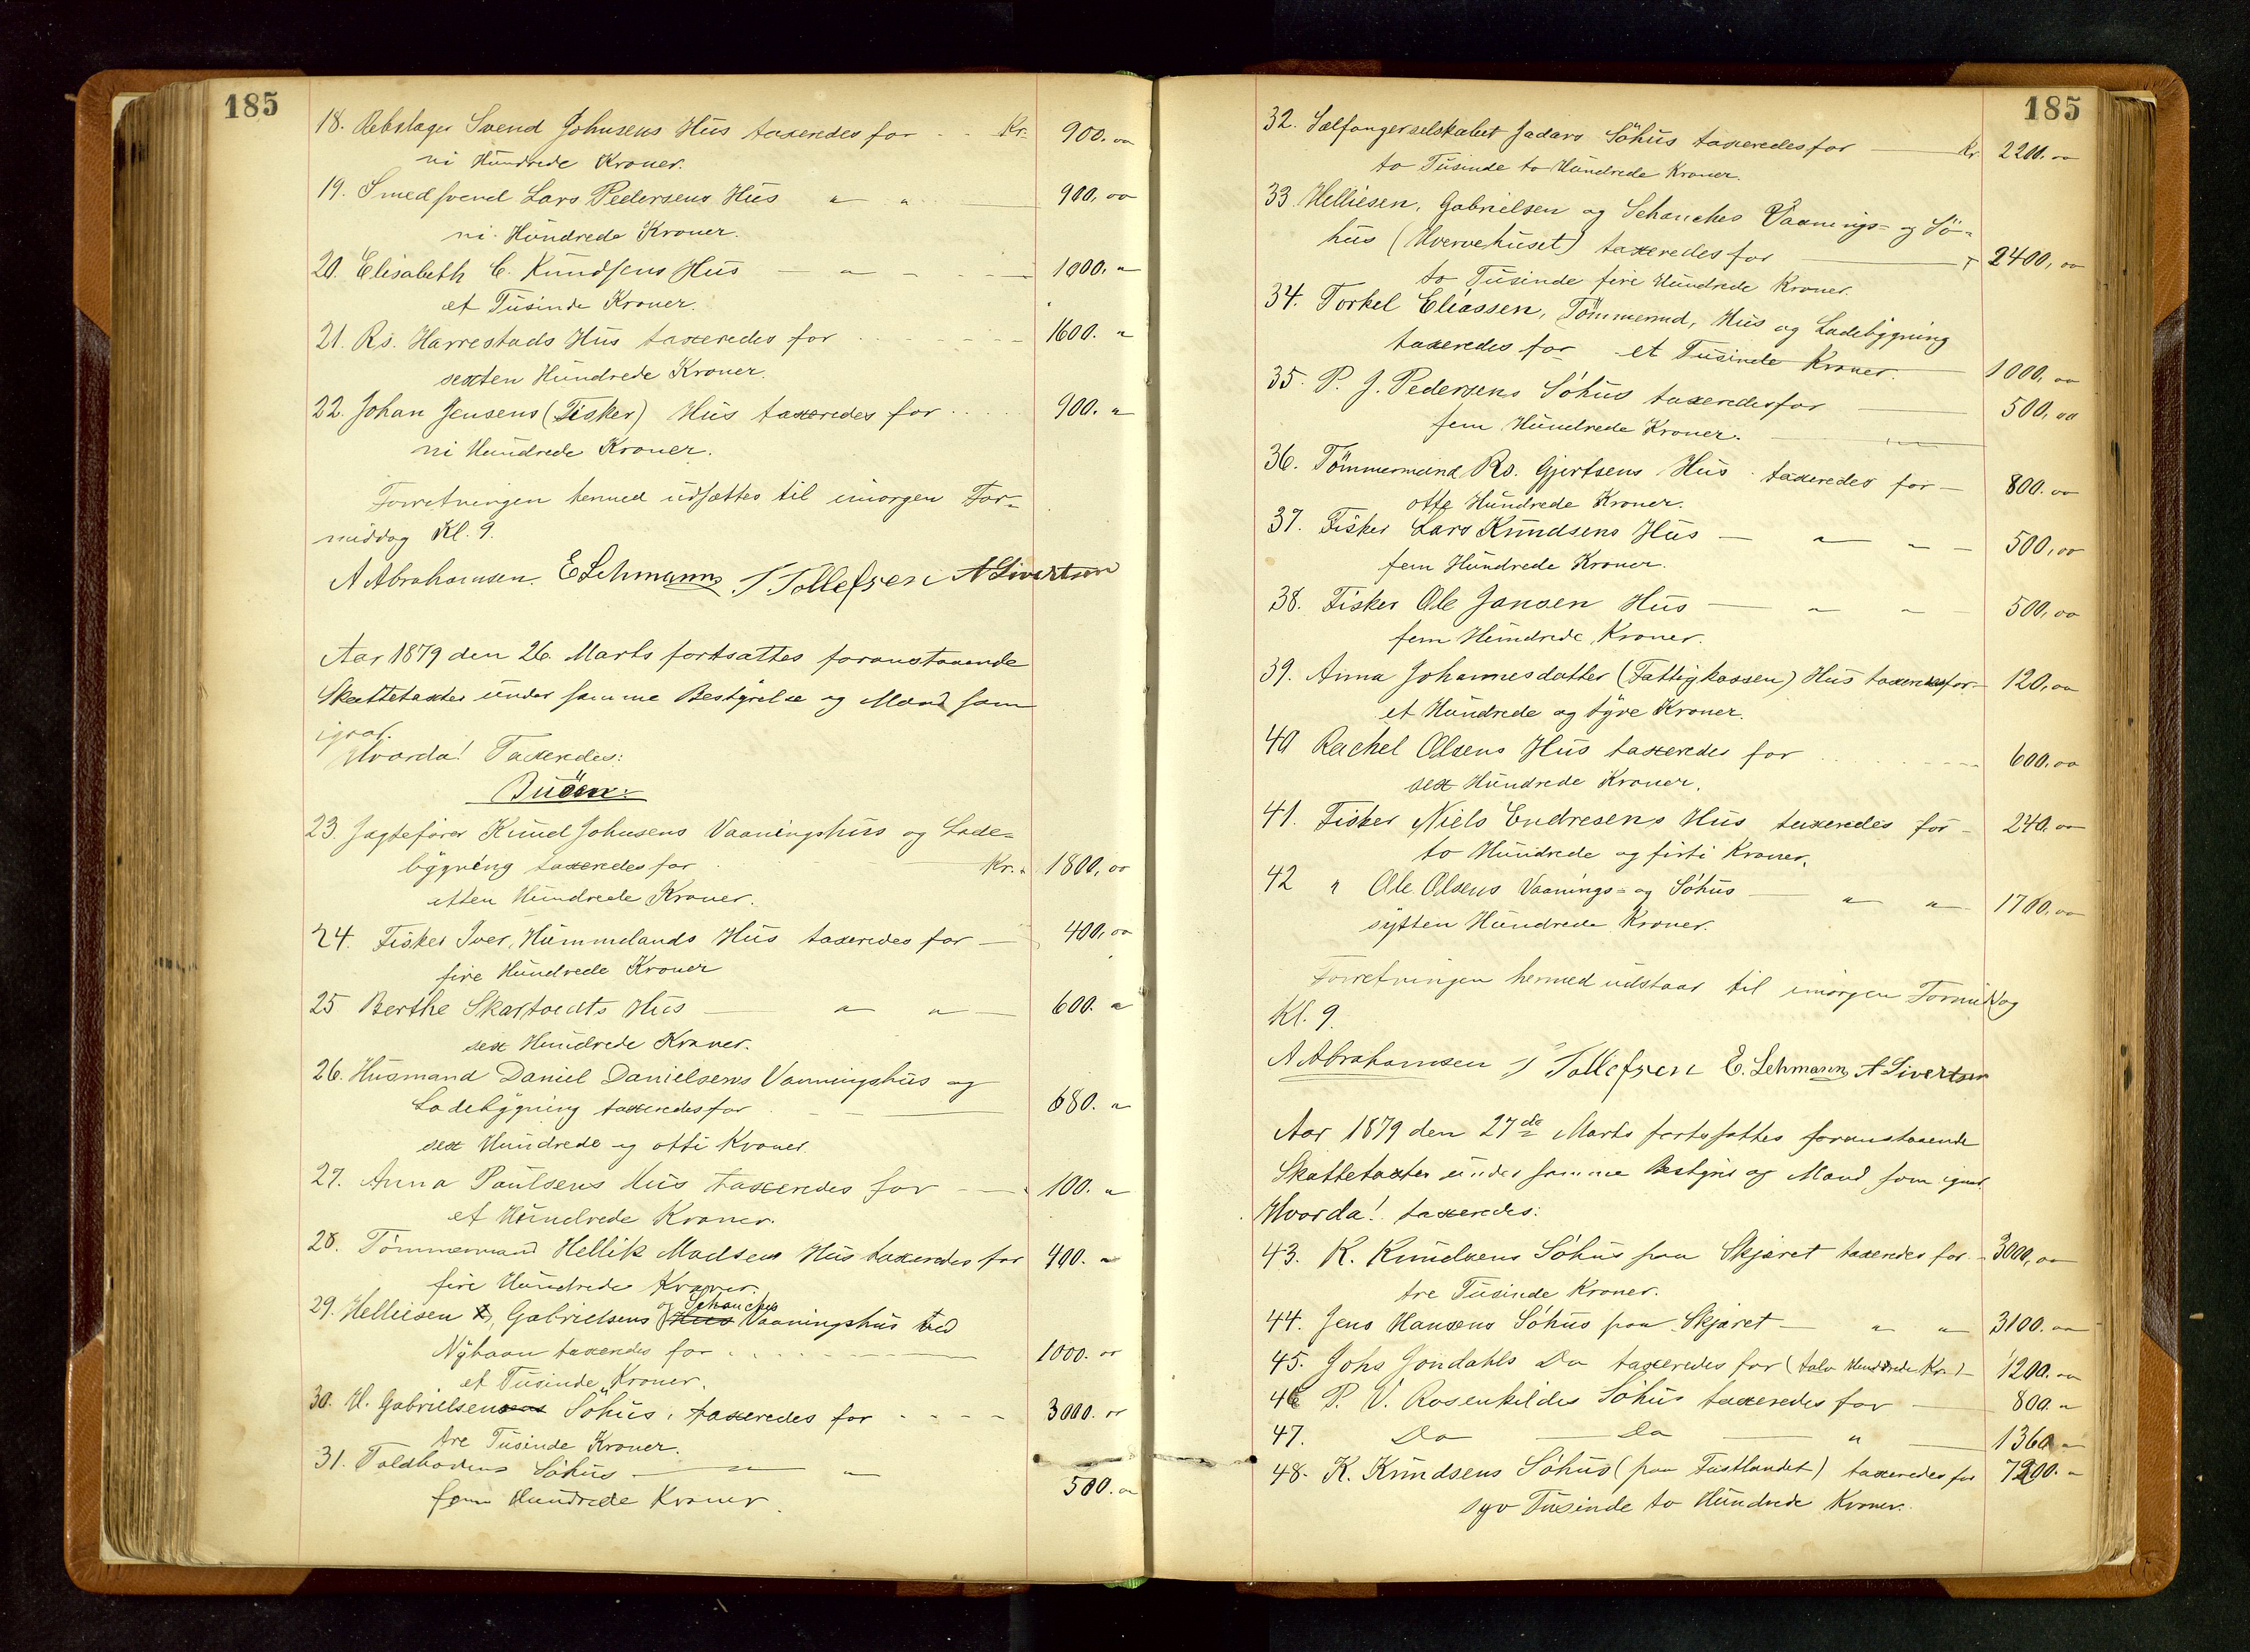 185
18. Rebslager Svend Johnsens Hus taxeredes for - - Kr. 900.00
ni Hundrede Kroner.
19. Smedsvend Lars Pedersens Hus " " 900,00
ni Hundrede Kroner.
20. Elisabeth C. Knudsens Hus — " - - - 1000. "
et Tusinde Kroner.
21. Rs. Harrestads Hus taxeredes for - - - - 1600. "
sexten Hundrede Kroner.
22. Johan Jensens (Fisker) Hus taxeredes for . . . 900. "
ni Hundrede Kroner.
Forretningen hermed udsattes til imorgen For-
middag Kl. 9.
A Abrahamsen. E Lehmann T Tollefsen A Sivertsen
Aar 1879 den 26. Marts fortsattes foranstaaende
Skattetaxter under samme Bestyrelse og Mænd som
igaar.
Hvorda! Taxeredes:
Buöen:
23. Jagtefører Knud Johnsens Vaaningshus og Lade-
bygning taxeredes for Kr. 1800,00
atten Hundrede Kroner.
24. Fisker Iver Hummelands Hus taxeredes for — 400,00
fire Hundrede Kroner
25 Berthe Skartvedts Hus — " " — 600. "
sex Hundrede Kroner.
26. Husmand Daniel Danielsens Vaaningshus og
Ladebygning taxeredes for — 680. "
sex Hundrede og otti Kroner
27. Anna Paulsens Hus taxeredes for — 100. "
et Hundrede Kroner.
28. Tömmermand Hellik Madsens Hus taxeredes for 400. "
fire Hundrede Kroner.
og Schanches
29. Helliesen &, Gabrielsens Hus Vaaningshus ved
Nyhavn taxeredes for . . . . 1000. 00
et Tusinde Kroner.
30. H. Gabrielsens Söhus, taxeredes for - - - - 3000. 00
tre Tusinde Kroner.
31. Toldbodens Söhus — " " 500. 00
fem Hundrede Kroner.
185
32. Sælfangerselskabet Jadars Söhus taxeredes for — Kr 2200.00
to Tusinde to Hundrede Kroner.
33. Helliesen, Gabrielsen og Schanches Vaanings- og Sö-
hus (Hvervehuset) taxeredes for — 2400,00
to Tusinde fire Hundrede Kroner.
34. Torkel Eliassen, Tömmermd, Hus og Ladebygning
taxeredes for et Tusinde Kroner. — 1000,00
35. P. J. Pedersens Söhus taxeredes for — 500,00
fem Hundrede Kroner.
36. Tömmermand Rs. Gjertsens Hus taxeredes for — 800.00
otte Hundrede Kroner.
37. Fisker Lars Knudsens Hus — " " — 500,00
fem Hundrede Kroner.
38. Fisker Ole Jansen Hus — " " — 500,00
fem Hundrede Kroner.
39. Anna Johannesdatter (Fattigkassen) Hus taxeredes for — 120,00
et Hundrede og tyve Kroner.
40 Rachel Olsens Hus taxeredes for . . . 600.00
sex Hundrede Kroner.
41. Fisker Niels Endresens Hus taxeredes for — 240.00
to Hundrede og firti Kroner.
42 " Ole Olsens Vaanings- og Söhus — " " 1700.00
sytten Hundrede Kroner.
Forretningen hermed udstaar til imorgen Formidag
Kl. 9.
A Abrahamsen T Tollefsen E. Lehmann A Sivertsen
Aar 1879 den 27de Marts fortsattes foranstaaende
Skattetaxter under samme Bestyrer og Mænd som igaar.
Hvorda! taxeredes:
43. K. Knudsens Söhus paa Skjæret taxeredes for - 3000,00
tre Tusinde Kroner.
44. Jens Hansens Söhus paa Skjæret — " " 3100.00
45. Johs Jondahls Do taxeredes for (tolv Hundrede Kr.) — 1200.00
46 P. V. Rosenkildes Söhus taxeredes for — 800. "
47. Do — Do — " — 1360 "
48. K. Knudsens Söhus (paa Fastlandet) taxeredes for 7200. "
syv Tusinde to Hundrede Kroner.